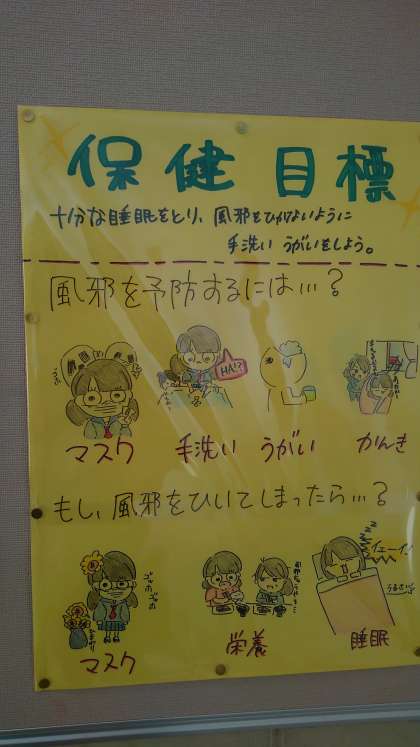 保健目標
十分な睡眠をとり、風邪をひかないように
手洗い うがいをしよう。
風邪を予防するには…?
HA!?
マスク 手洗い うがい かんき
もし、風邪をひいてしまったら…?
イェーイ
マスク 栄養 睡眠